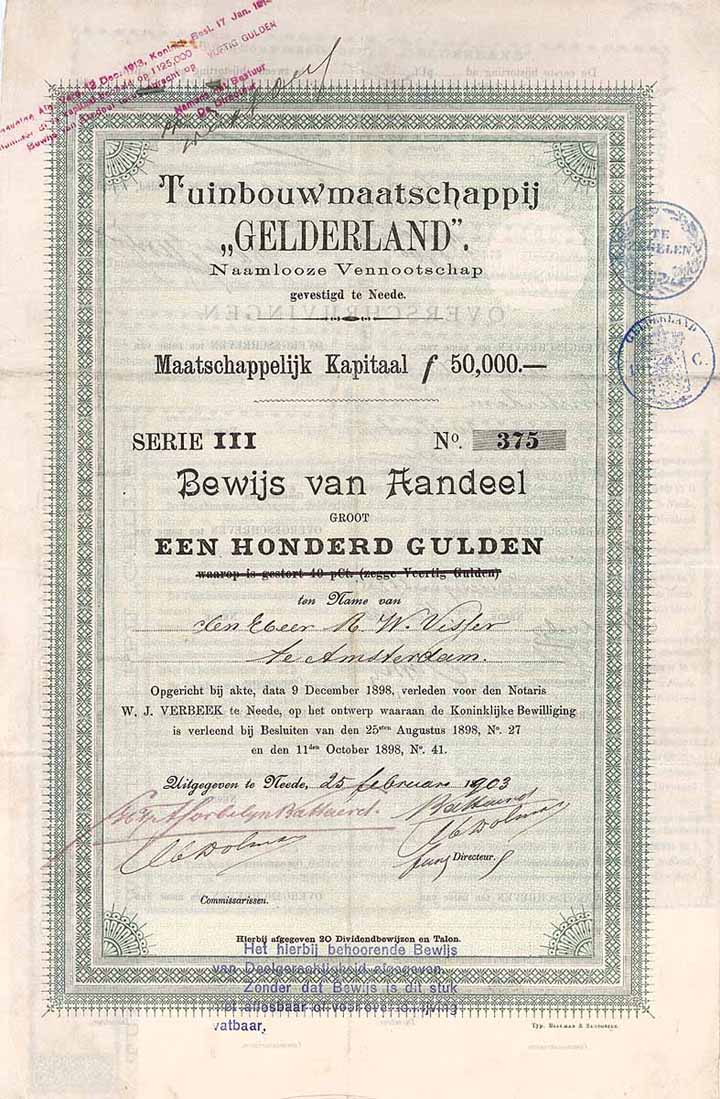 12 Dec. 1913, Konink. Besl. 17 Jan.
op f 125,000
VIJFTIG GULDEN
Bewijs van Aandeel
Namens het Bestuur
De Directeur
Tuinbouwmaatschappij
„GELDERLAND”.
Naamlooze Vennootschap
gevestigd te Neede.
TE
ZEGELEN
GELDERLAND
C.
Maatschappelijk Kapitaal f 50,000.—
SERIE III No. 375
Bewijs van Aandeel
GROOT
EEN HONDERD GULDEN
waarop is gestort 40 pCt. (zegge Veertig Gulden)
ten Name van
den Heer A. W. Visser
te Amsterdam.
Opgericht bij akte, data 9 December 1898, verleden voor den Notaris
W. J. VERBEEK te Neede, op het ontwerp waaraan de Koninklijke Bewilliging
is verleend bij Besluiten van den 25sten Augustus 1898, No. 27
en den 11den October 1898, No. 41.
Uitgegeven te Neede, 25 februari 1903
Directeur.
Commissarissen.
Hierbij afgegeven 20 Dividendbewijzen en Talon.
Het hierbij behoorende Bewijs
van Deelgerechtigheid afgegeven.
Zonder dat Bewijs is dit stuk
niet aflosbaar of voor overschrijving
vatbaar,